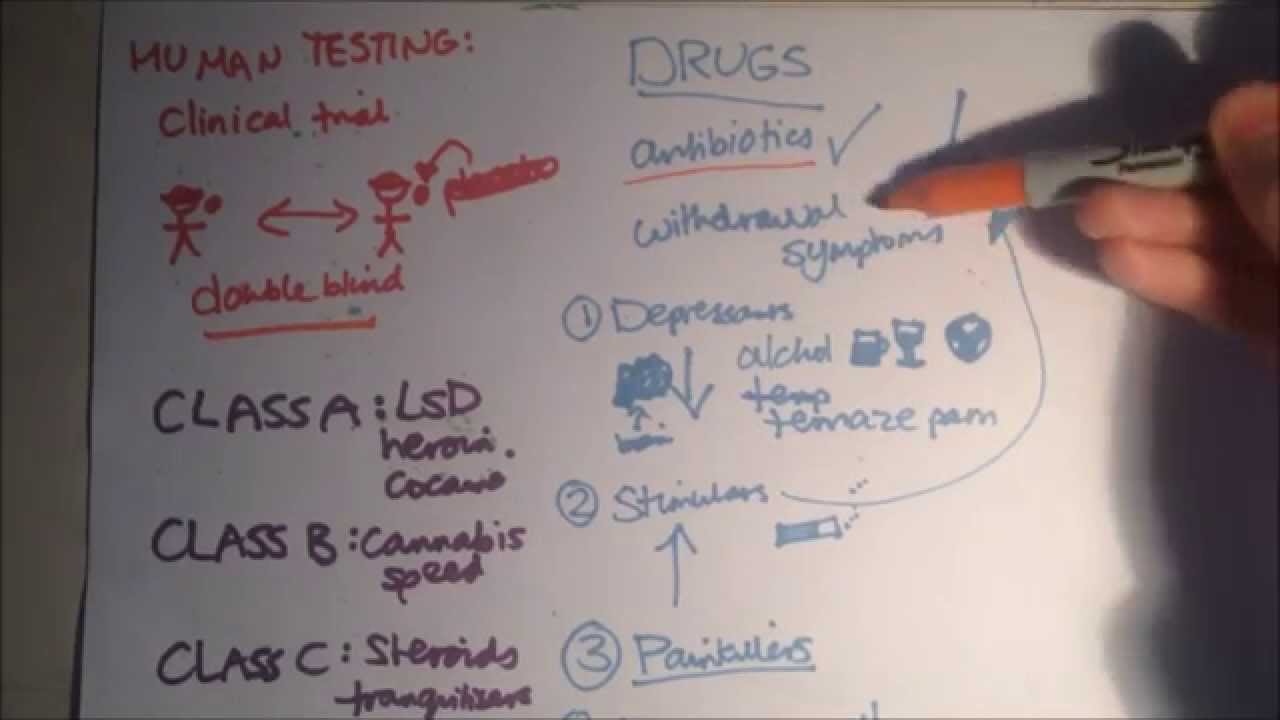 HUMAN TESTING:
Clinical trial
double blind
CLASS A : LSD
heroin.
cocaine
CLASS B : cannabis
speed
CLASS C : Steroids
tranquilizers
DRUGS
antibiotics ✓
withdrawal
symptoms
① Depressants
alchol
temp
temazepam
② Stimulars
③ Painkillers